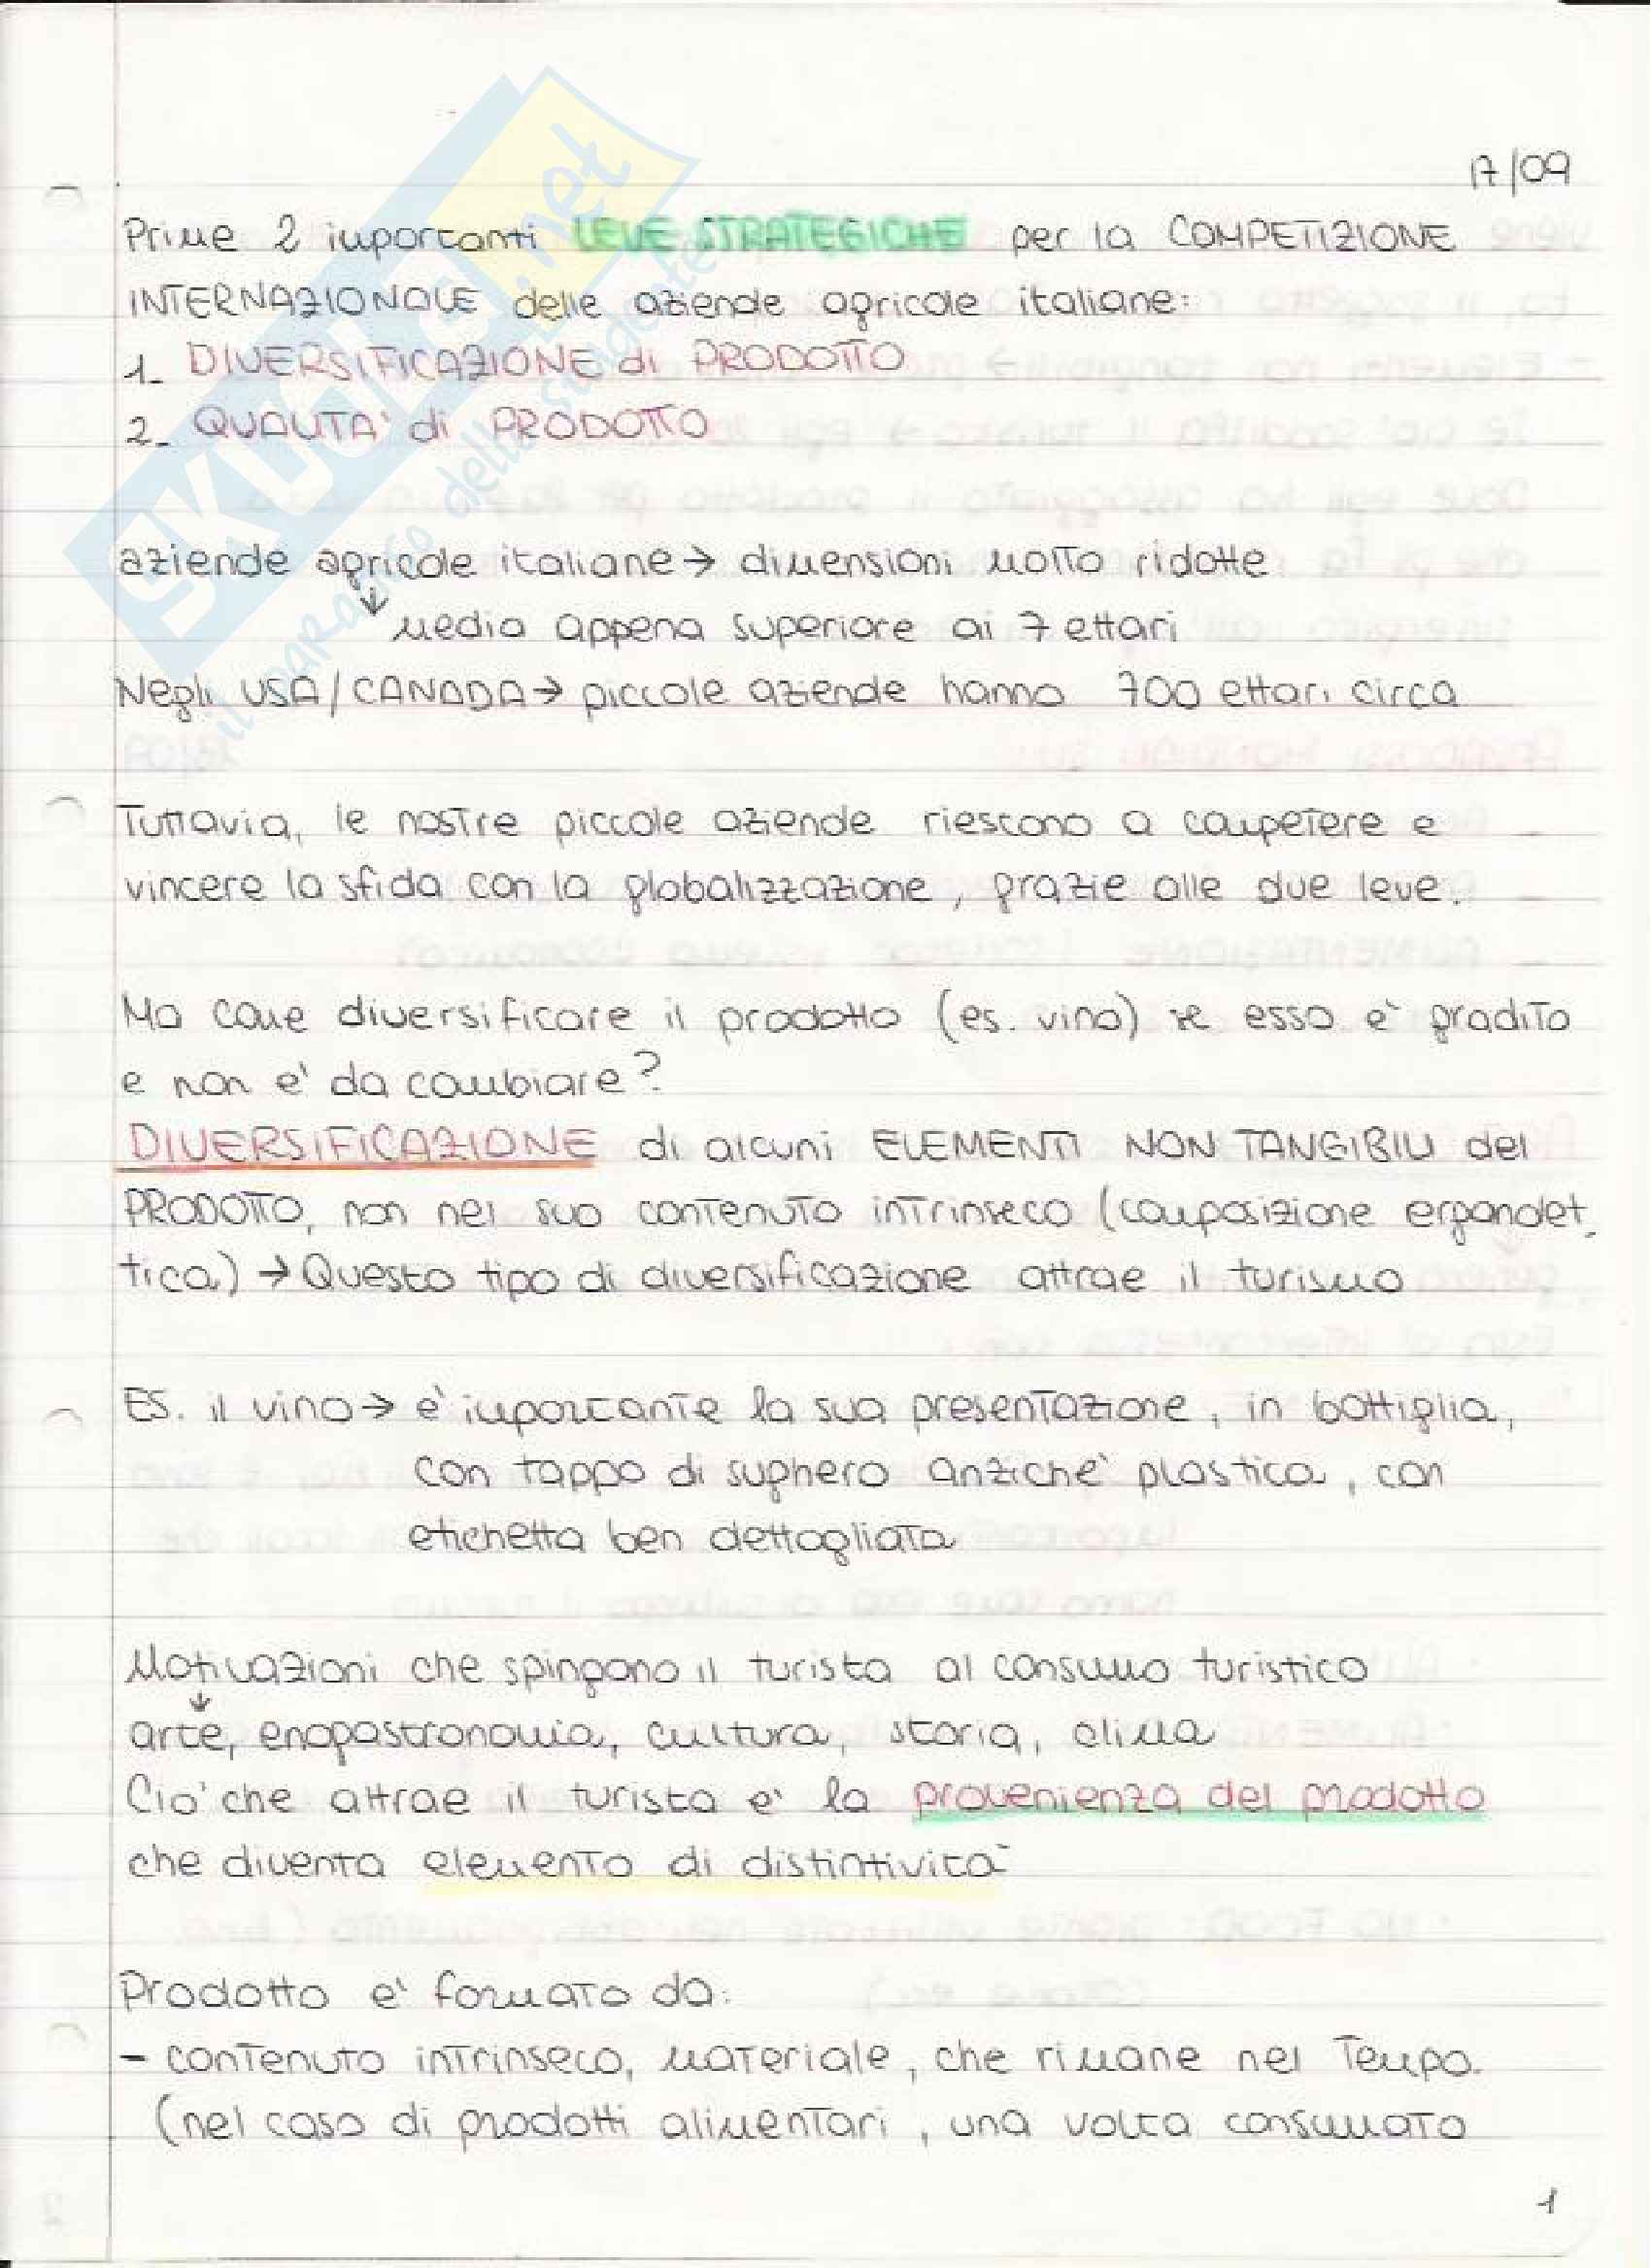 17/09
Prime 2 importanti LEVE STRATEGICHE per la COMPETIZIONE
INTERNAZIONALE delle aziende agricole italiane:
1_ DIVERSIFICAZIONE di PRODOTTO
2_ QUALITA' di PRODOTTO
aziende agricole italiane → dimensioni molto ridotte
↓ media appena superiore ai 7 ettari
Negli USA/CANADA → piccole aziende hanno 700 ettari circa
Tuttavia, le nostre piccole aziende riescono a competere e
vincere la sfida con la globalizzazione, grazie alle due leve.
Ma come diversificare il prodotto (es. vino) se esso e' gradito
e non e' da cambiare?
DIVERSIFICAZIONE di alcuni ELEMENTI NON TANGIBILI del
PRODOTTO, non nel suo contenuto intrinseco (composizione ergandet_
tica) → Questo tipo di diversificazione attrae il turismo
ES. il vino → e' importante la sua presentazione, in bottiglia,
con tappo di sughero anziche' plastica, con
etichetta ben dettagliata
Motivazioni che spingono il turista al consumo turistico
↓
arte, enogastronomia, cultura, storia, clima
Cio' che attrae il turista e' la provenienza del prodotto
che diventa elemento di distintivita'
Prodotto e' formato da:
- contenuto intrinseco, materiale, che rimane nel tempo.
(nel caso di prodotti alimentari, una volta consumato
1
SKUOLA.net
il paradiso dello studente